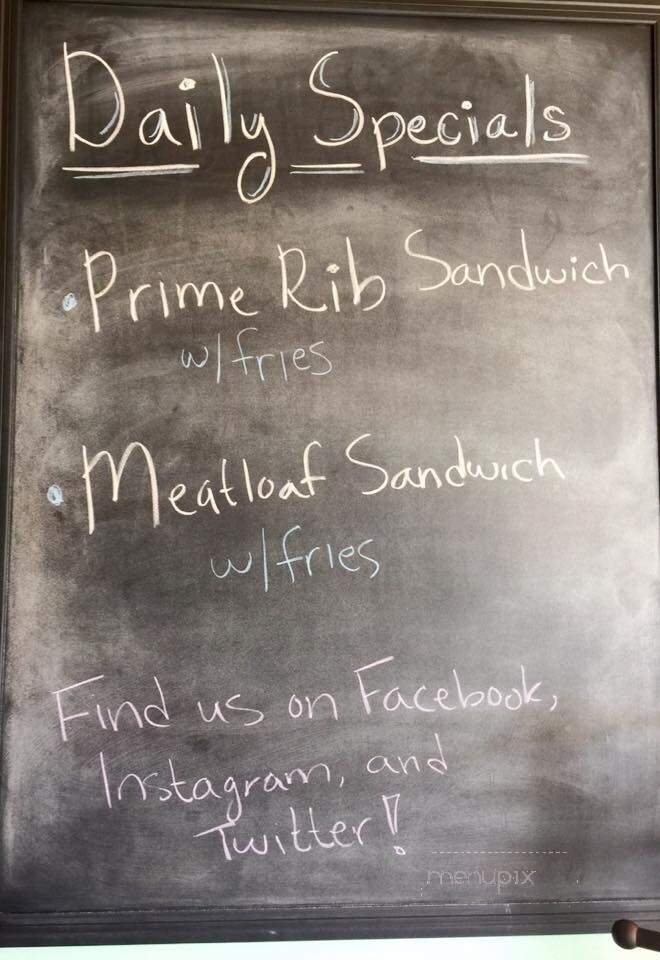 Daily Specials
• Prime Rib Sandwich
w/fries
• Meatloaf Sandwich
w/fries
Find us on Facebook,
Instagram, and
Twitter!
menupix